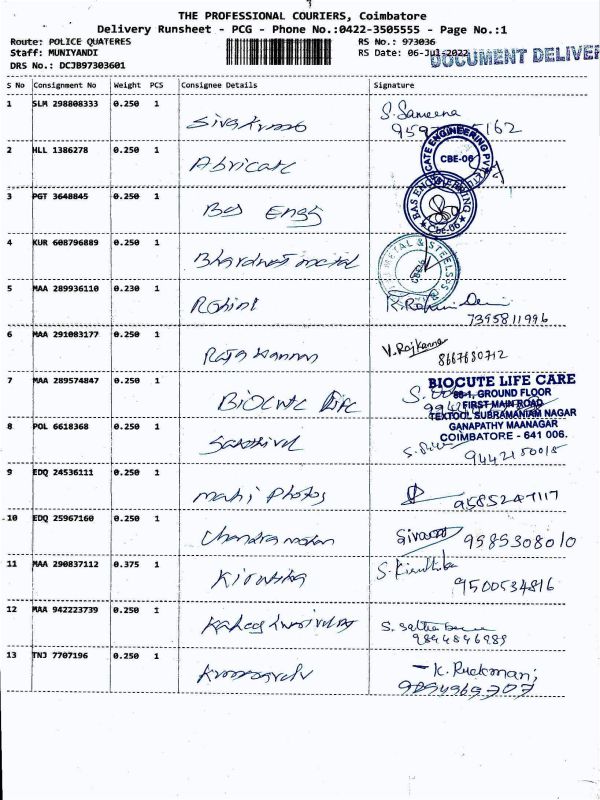 THE PROFESSIONAL COURIERS, Coimbatore
Delivery Runsheet - PCG - Phone No.:0422-3505555 - Page No.:1
Route: POLICE QUATERES RS No.: 973036
Staff: MUNIYANDI RS Date: 06-Jul-2022
DOCUMENT DELIVER
DRS No.: DCJB97303601
S No Consignment No Weight PCS Consignee Details Signature
1 SLM 298808333 0.250 1
S. Sameena
2 HLL 1386278 0.250 1 Abricate
CBE-06
3 PGT 3648845 0.250 1 Bas Engg
BAS ENGINEERING
CBE-06
4 KUR 608796889 0.250 1
METAL & STEELS
5 MAA 289936110 0.230 1 Rohini
7395811996
6 MAA 291083177 0.250 1 Raja Kannan V. Rajkanna
8667680712
7 MAA 289574847 0.250 1 Biocute Life
BIOCUTE LIFE CARE
GROUND FLOOR
FIRST MAIN ROAD
TEXTOOL SUBRAMANIAM NAGAR
GANAPATHY MAANAGAR
COIMBATORE - 641 006.
8 POL 6618368 0.250 1 Sakthivel
9442150015
9 EDQ 24536111 0.250 1 mahi Photos
9585247117
10 EDQ 25967160 0.250 1 Chandra mohan
9585308010
11 MAA 290837112 0.375 1 S. Kiruthika
9500534816
12 MAA 942223739 0.250 1
9894846989
13 TNJ 7707196 0.250 1 K. Rukmani